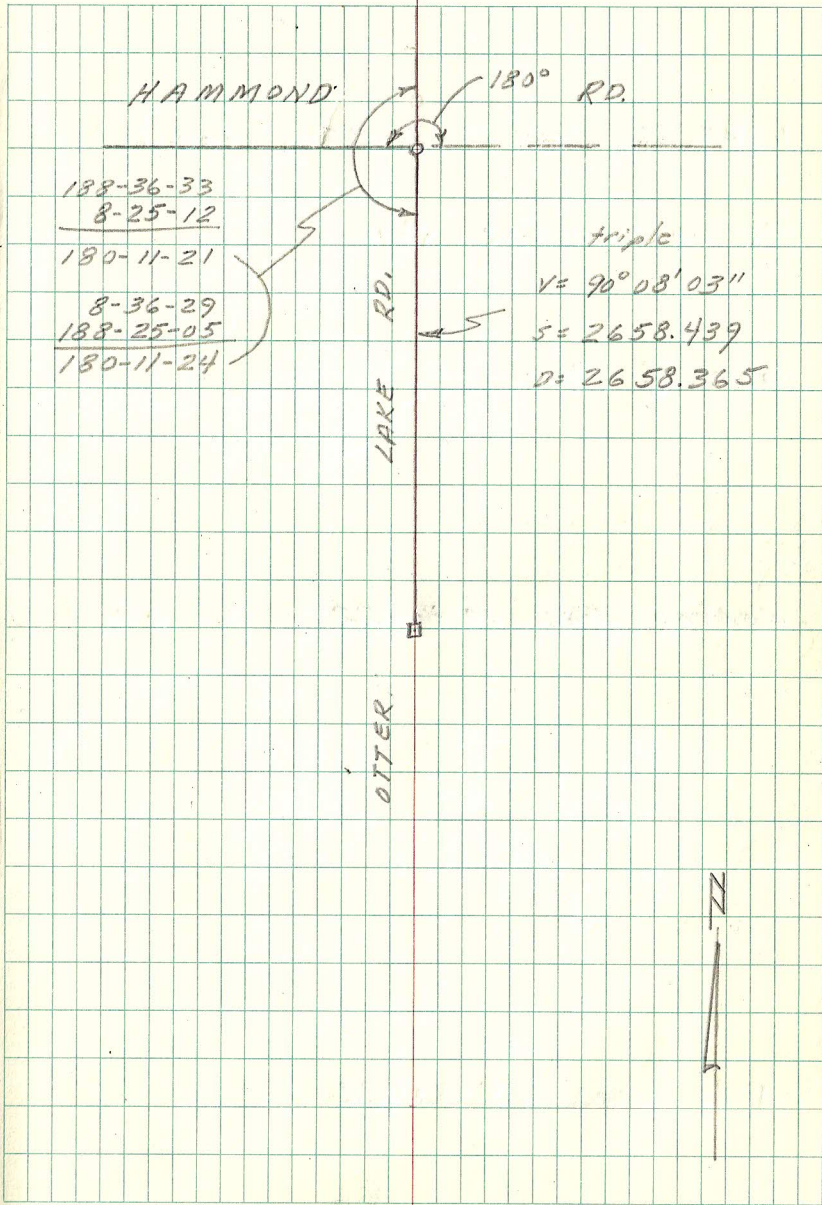 HAMMOND 180° RD.
188-36-33
8-25-12
180-11-21
8-36-29
188-25-05
180-11-24
triple
V= 90° 08' 03"
S= 2658.439
D= 2658.365
LAKE RD.
OTTER
N